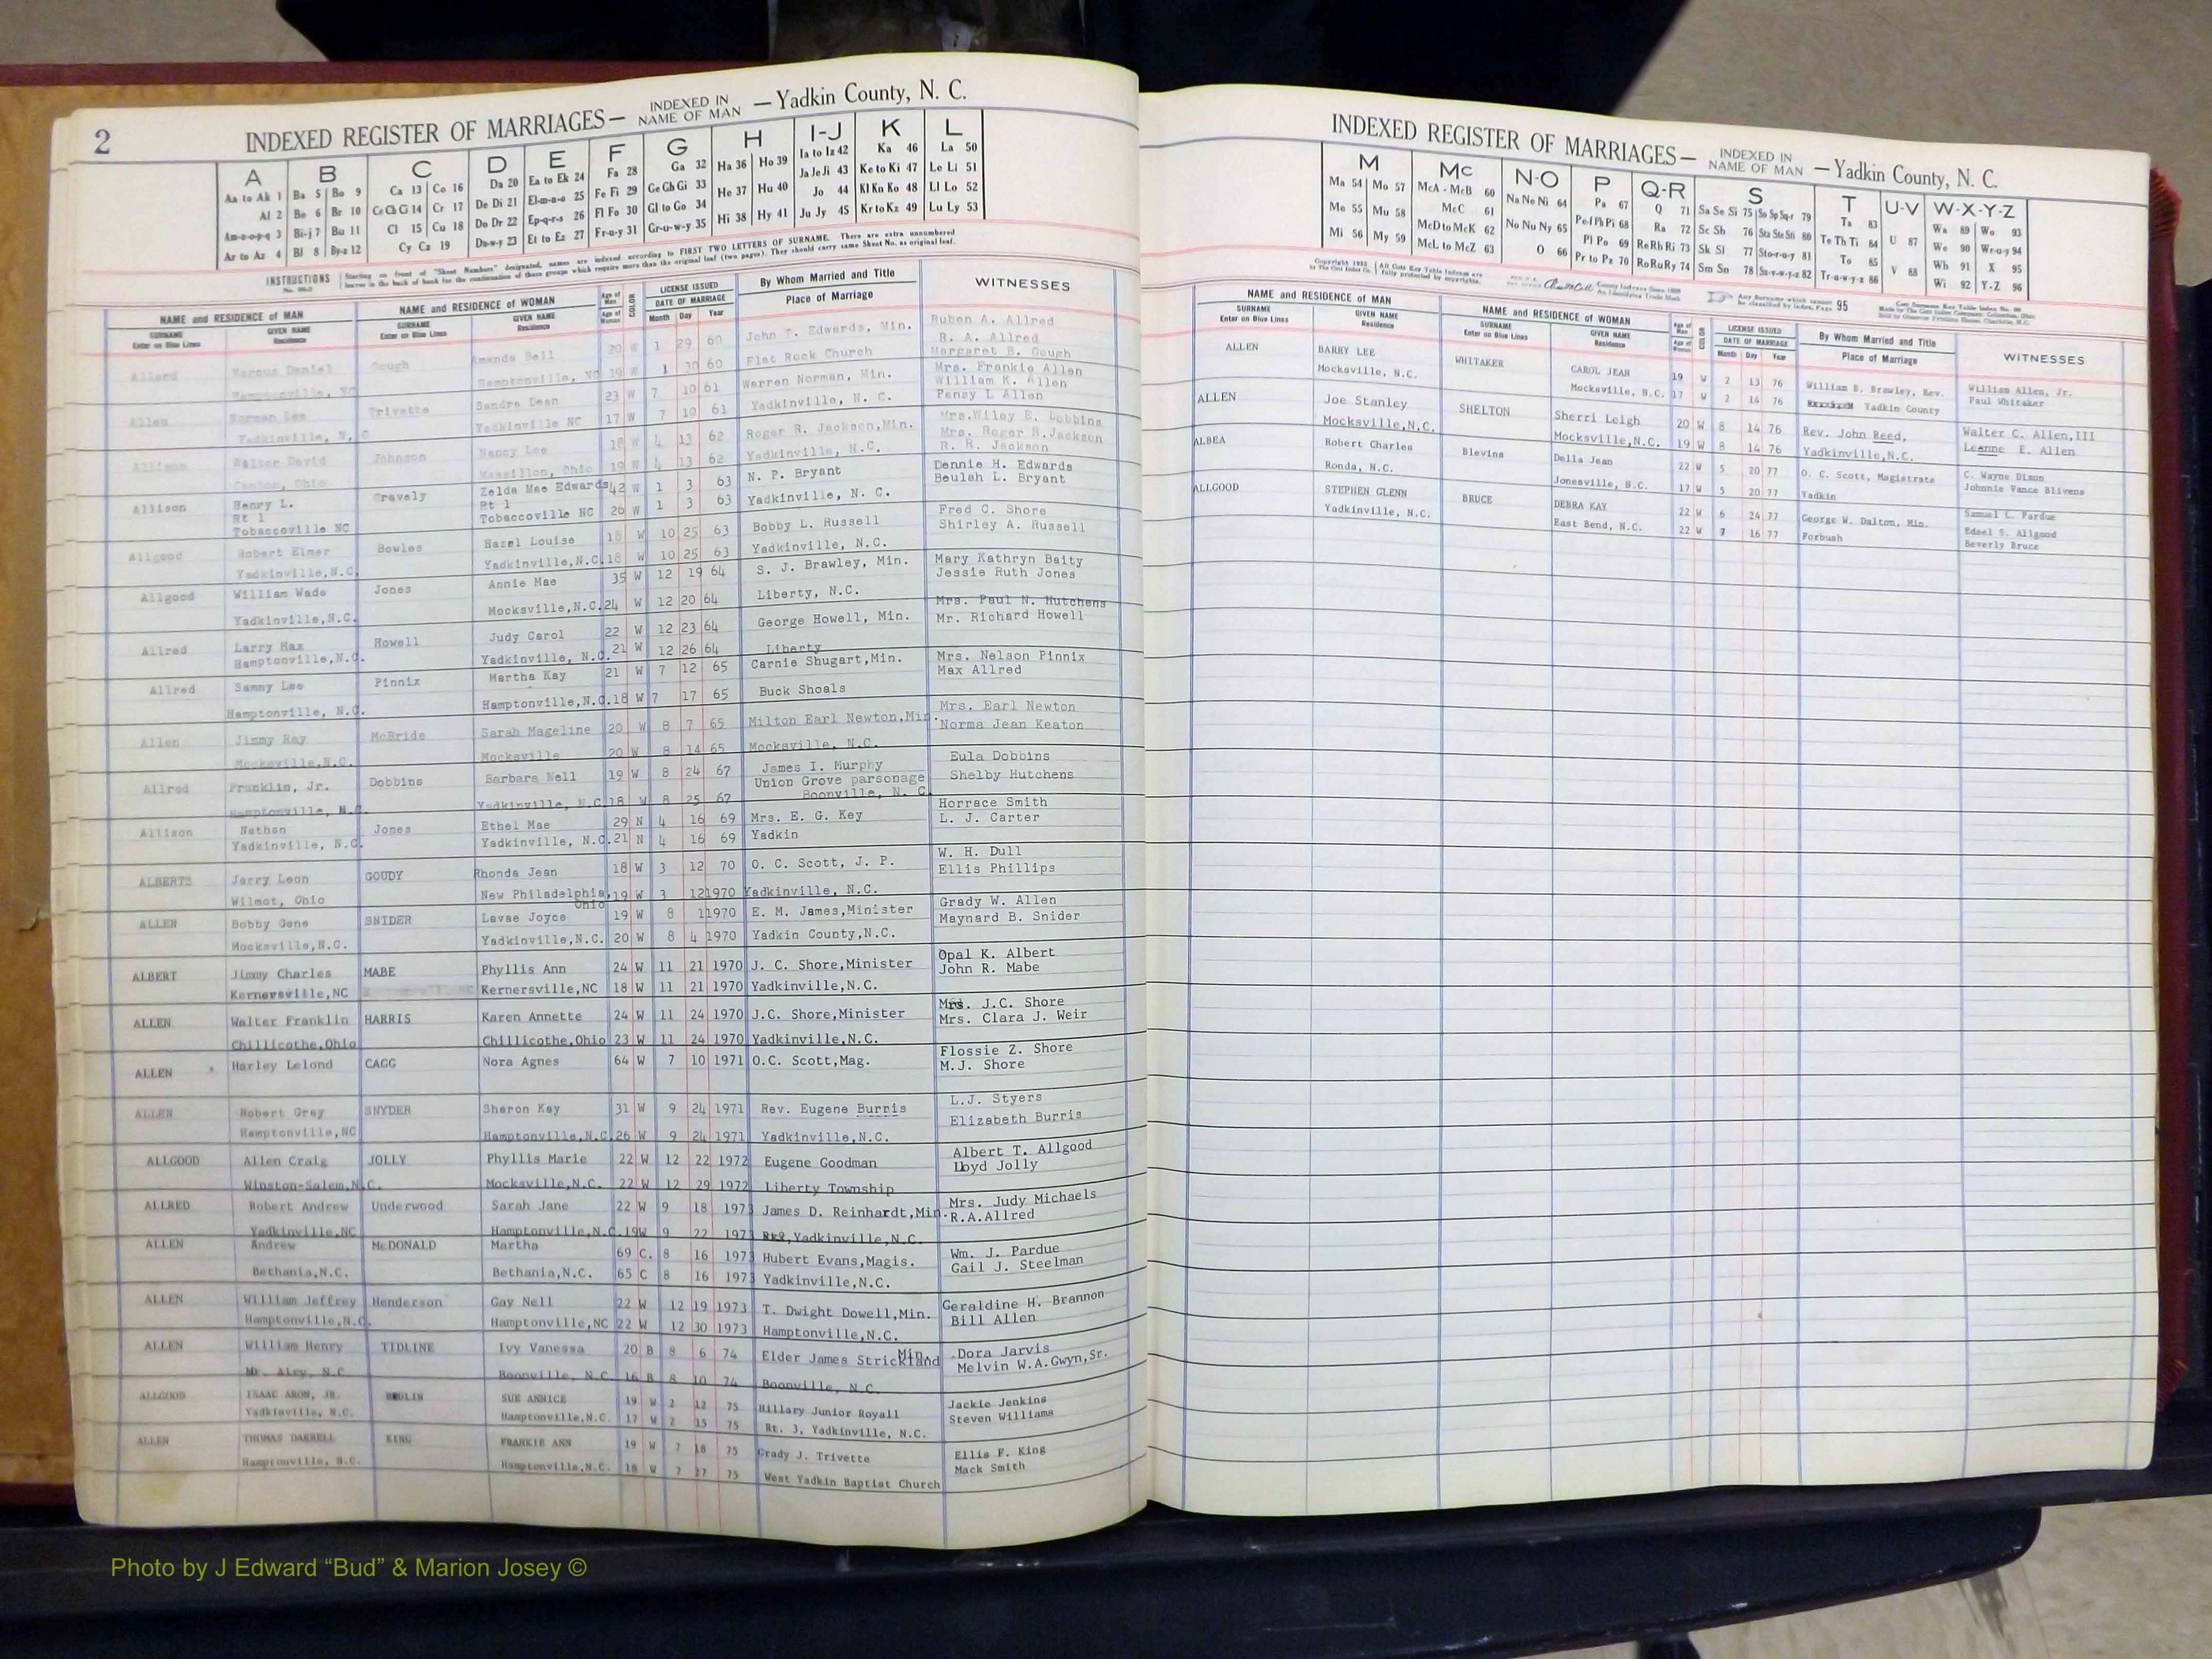 2
INDEXED REGISTER OF MARRIAGES— INDEXED IN NAME OF MAN —Yadkin County, N. C.
A B C D E F G H I-J K L
Aa to Ak 1 Ba 5 Bo 9 Ca 13 Co 16 Da 20 Ea to Ek 24 Fa 28 Ga 32 Ha 36 Ho 39 Ia to Iz 42 Ka 46 La 50
Al 2 Be 6 Br 10 Ce Ch G 14 Cr 17 De Di 21 El-m-n-o 25 Fe Fi 29 Ge Gh Gi 33 He 37 Hu 40 Ja Je Ji 43 Ke to Ki 47 Le Li 51
Am-n-o-p-q 3 Bi-j 7 Bu 11 Cl 15 Cu 18 Do Dr 22 Ep-q-r-s 26 Fl Fo 30 Gl to Go 34 Hi 38 Hy 41 Jo 44 Kl Kn Ko 48 Ll Lo 52
Ar to Az 4 Bl 8 By-z 12 Cy Cz 19 Du-w-y 23 Et to Ez 27 Fr-u-y 31 Gr-u-w-y 35 Ju Jy 45 Kr to Kz 49 Lu Ly 53
INSTRUCTIONS Starting on front of "Sheet Numbers" designated, names are indexed according to FIRST TWO LETTERS OF SURNAME. There are extra unnumbered
leaves in the back of book for the continuation of those groups which require more than the original leaf (two pages). They should carry same Sheet No. as original leaf.
NAME and RESIDENCE OF MAN NAME and RESIDENCE OF WOMAN Age of Man COLOR LICENSE ISSUED By Whom Married and Title WITNESSES
SURNAME GIVEN NAME SURNAME GIVEN NAME Age of Woman DATE OF MARRIAGE Place of Marriage
Enter on Blue Lines Residence Enter on Blue Lines Residence Month Day Year
Allard Marcus Daniel Gough Amanda Bell 20 W 1 29 60 John T. Edwards, Min. Ruben A. Allred
R. A. Allred
Hamptonville, NC Hamptonville, NC 19 W 1 30 60 Flat Rock Church Margaret B. Gough
Allen Norman Lee Trivette Sandra Dean 23 W 7 10 61 Warren Norman, Min. Mrs. Frankie Allen
William K. Allen
Yadkinville, N. C Yadkinville NC 17 W 7 10 61 Yadkinville, N. C. Pensy L Allen
Allison Walter David Johnson Nancy Lee 18 W 4 13 62 Roger R. Jackson,Min. Mrs.Wiley E. Dobbins
Mrs. Roger R.Jackson
Canton, Ohio Massillon, Ohio 19 W 4 13 62 Yadkinville, N.C. R. R. Jackson
Allison Henry L. Gravely Zelda Mae Edwards 42 W 1 3 63 N. P. Bryant Dennie H. Edwards
Rt 1 Rt 1 Beulah L. Bryant
Tobaccoville NC Tobaccoville NC 26 W 1 3 63 Yadkinville, N. C.
Allgood Robert Elmer Bowles Hazel Louise 18 W 10 25 63 Bobby L. Russell Fred C. Shore
Yadkinville, N.C. Yadkinville, N.C. 18 W 10 25 63 Yadkinville, N.C. Shirley A. Russell
Allgood William Wade Jones Annie Mae 35 W 12 19 64 S. J. Brawley, Min. Mary Kathryn Baity
Yadkinville,N.C. Mocksville,N.C. 24 W 12 20 64 Liberty, N.C. Jessie Ruth Jones
Allred Larry Max Howell Judy Carol 22 W 12 23 64 George Howell, Min. Mrs. Paul N. Hutchens
Hamptonville,N.C. Yadkinville, N.C. 21 W 12 26 64 Liberty Mr. Richard Howell
Allred Sammy Lee Pinnix Martha Kay 21 W 7 12 65 Carnie Shugart,Min. Mrs. Nelson Pinnix
Hamptonville, N.C. Hamptonville,N.C. 18 W 7 17 65 Buck Shoals Max Allred
Allen Jimmy Ray McBride Sarah Mageline 20 W 8 7 65 Milton Earl Newton,Min. Mrs. Earl Newton
Mocksville,N.C. Mocksville 20 W 8 14 65 Mocksville, N.C. Norma Jean Keaton
Allred Franklin, Jr. Dobbins Barbara Nell 19 W 8 24 67 James I. Murphy Eula Dobbins
Union Grove parsonage Shelby Hutchens
Hamptonville, N.C. Yadkinville, N.C. 18 W 8 25 67 Boonville, N. C.
Allison Nathan Jones Ethel Mae 29 N 4 16 69 Mrs. E. G. Key Horrace Smith
Yadkinville, N.C. Yadkinville, N.C. 21 N 4 16 69 Yadkin L. J. Carter
ALBERTS Jerry Leon GOUDY Rhonda Jean 18 W 3 12 70 O. C. Scott, J. P. W. H. Dull
Wilmot, Ohio New Philadelphia, Ohio 19 W 3 12 1970 Yadkinville, N.C. Ellis Phillips
ALLEN Bobby Gene SNIDER Lavae Joyce 19 W 8 1 1970 E. M. James,Minister Grady W. Allen
Mocksville,N.C. Yadkinville,N.C. 20 W 8 4 1970 Yadkin County,N.C. Maynard B. Snider
ALBERT Jimmy Charles MABE Phyllis Ann 24 W 11 21 1970 J. C. Shore,Minister Opal K. Albert
Kernersville,NC Kernersville,NC 18 W 11 21 1970 Yadkinville,N.C. John R. Mabe
ALLEN Walter Franklin HARRIS Karen Annette 24 W 11 24 1970 J.C. Shore,Minister Mrs. J.C. Shore
Chillicothe,Ohio Chillicothe,Ohio 23 W 11 24 1970 Yadkinville,N.C. Mrs. Clara J. Weir
ALLEN Harley Lelond CAGG Nora Agnes 64 W 7 10 1971 O.C. Scott,Mag. Flossie Z. Shore
M.J. Shore
ALLEN Robert Gray SNYDER Sharon Kay 31 W 9 24 1971 Rev. Eugene Burris L.J. Styers
Hamptonville,NC Hamptonville,N.C. 26 W 9 24 1971 Yadkinville,N.C. Elizabeth Burris
ALLGOOD Allen Craig JOLLY Phyllis Marie 22 W 12 22 1972 Eugene Goodman Albert T. Allgood
Winston-Salem,N.C. Mocksville,N.C. 22 W 12 29 1972 Liberty Township Lloyd Jolly
ALLRED Robert Andrew Underwood Sarah Jane 22 W 9 18 1973 James D. Reinhardt,Min. Mrs. Judy Michaels
Yadkinville,NC Hamptonville,N.C. 19W 9 22 1973 Rt2,Yadkinville,N.C. R.A.Allred
ALLEN Andrew McDONALD Martha 69 C. 8 16 1973 Hubert Evans,Magis. Wm. J. Pardue
Bethania,N.C. Bethania,N.C. 65 C 8 16 1973 Yadkinville,N.C. Gail J. Steelman
ALLEN William Jeffrey Henderson Gay Nell 22 W 12 19 1973 T. Dwight Dowell,Min. Geraldine H. Brannon
Hamptonville,N.C. Hamptonville,NC 22 W 12 30 1973 Hamptonville,N.C. Bill Allen
ALLEN William Henry TIDLINE Ivy Vanessa 20 B 8 6 74 Elder James Strickland Min. Dora Jarvis
Mt. Airy, N.C Boonville, N.C. 16 B 8 10 74 Boonville, N.C. Melvin W.A.Gwyn,Sr.
ALLGOOD ISAAC ARON, JR. SUE ANNICE 19 W 2 12 75 Hillary Junior Royall Jackie Jenkins
Yadkinville, N.C. Hamptonville,N.C. 17 W 2 15 75 Rt. 3, Yadkinville, N.C. Steven Williams
ALLEN THOMAS DARRELL KING FRANKIE ANN 19 W 7 18 75 Grady J. Trivette Ellis F. King
Hamptonville, N.C. Hamptonville,N.C. 18 W 7 27 75 West Yadkin Baptist Church Mack Smith
INDEXED REGISTER OF MARRIAGES— INDEXED IN NAME OF MAN —Yadkin County, N. C.
M Mc N-O P Q-R S T U-V W-X-Y-Z
Ma 54 Mo 57 McA - McB 60 Na Ne Ni 64 Pa 67 Q 71 Sa Se Si 75 So Sp Sq-r 79 Ta 83 U 87 Wa 89 Wo 93
Me 55 Mu 58 McC 61 No Nu Ny 65 Pe-f Ph Pi 68 Ra 72 Sc Sh 76 Sta Ste Sti 80 Te Th Ti 84 V 88 We 90 Wr-u-y 94
Mi 56 My 59 McD to McK 62 O 66 Pl Po 69 Re Rh Ri 73 Sk Sl 77 Sto-r-u-y 81 To 85 Wh 91 X 95
McL to McZ 63 Pr to Pz 70 Ro Ru Ry 74 Sm Sn 78 Su-v-w-y-z 82 Tr-u-w-y-z 86 Wi 92 Y-Z 96
NAME and RESIDENCE OF MAN NAME and RESIDENCE OF WOMAN Age of Man COLOR LICENSE ISSUED By Whom Married and Title WITNESSES
SURNAME GIVEN NAME SURNAME GIVEN NAME Age of Woman DATE OF MARRIAGE Place of Marriage
Enter on Blue Lines Residence Enter on Blue Lines Residence Month Day Year
ALLEN BARRY LEE WHITAKER CAROL JEAN 19 W 2 13 76 William B. Brawley, Rev. William Allen, Jr.
Mocksville, N.C. Mocksville, N.C. 17 W 2 14 76 Yadkin County Paul Whitaker
ALLEN Joe Stanley SHELTON Sherri Leigh 20 W 8 14 76 Rev. John Reed, Walter C. Allen,III
Mocksville,N.C. Mocksville,N.C. 19 W 8 14 76 Yadkinville,N.C. Leanne E. Allen
ALBEA Robert Charles Blevins Della Jean 22 W 5 20 77 O. C. Scott, Magistrate C. Wayne Dixon
Ronda, N.C. Jonesville, N.C. 17 W 5 20 77 Yadkin Johnnie Vance Blivens
ALLGOOD STEPHEN GLENN BRUCE DEBRA KAY 22 W 6 24 77 George W. Dalton, Min. Samuel L. Pardue
Edsel S. Allgood
Yadkinville, N.C. East Bend, N.C. 22 W 7 16 77 Forbush Beverly Bruce
Photo by J Edward “Bud” & Marion Josey ©